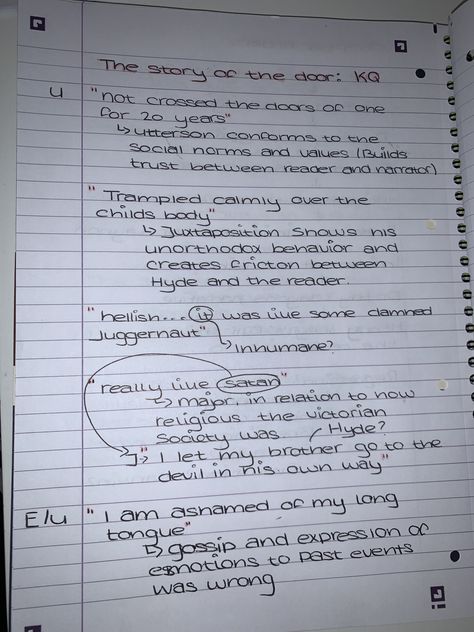 The story of the door: KQ
U "not crossed the doors of one
for 20 years"
↳ Utterson conforms to the
social norms and values (Builds
trust between reader and narrator)
"Trampled calmly over the
childs body"
↳ Juxtaposition shows his
unorthodox behavior and
creates fricton between
Hyde and the reader.
"hellish... it was like some damned
Juggernaut"
↳ inhumane?
"really like satan"
↳ major, in relation to how
religious the victorian
Society was.
Hyde?
"I let my brother go to the
devil in his own way"
E/U "I am ashamed of my long
tongue"
↳ gossip and expression of
emotions to past events
was wrong